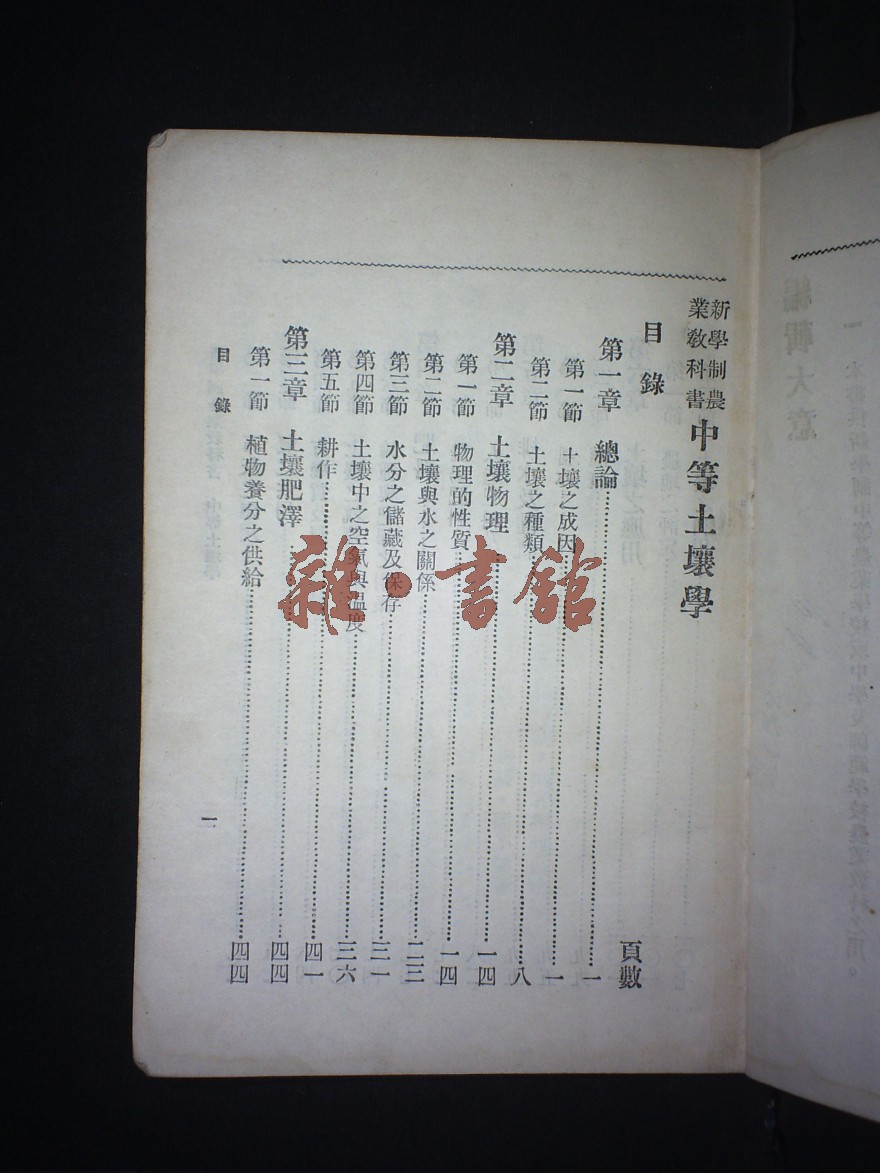 新學制農業教科書 中等土壤學
目錄
頁數
第一章 總論 一
第一節 土壤之成因 一
第二節 土壤之種類 八
第二章 土壤物理 一四
第一節 物理的性質 一四
第二節 土壤與水之關係 二三
第三節 水分之儲藏及保存 三一
第四節 土壤中之空氣與溫度 三六
第五節 耕作 四一
第三章 土壤肥澤 四四
第一節 植物養分之供給 四四
目錄
一
雜·書館
編輯大意